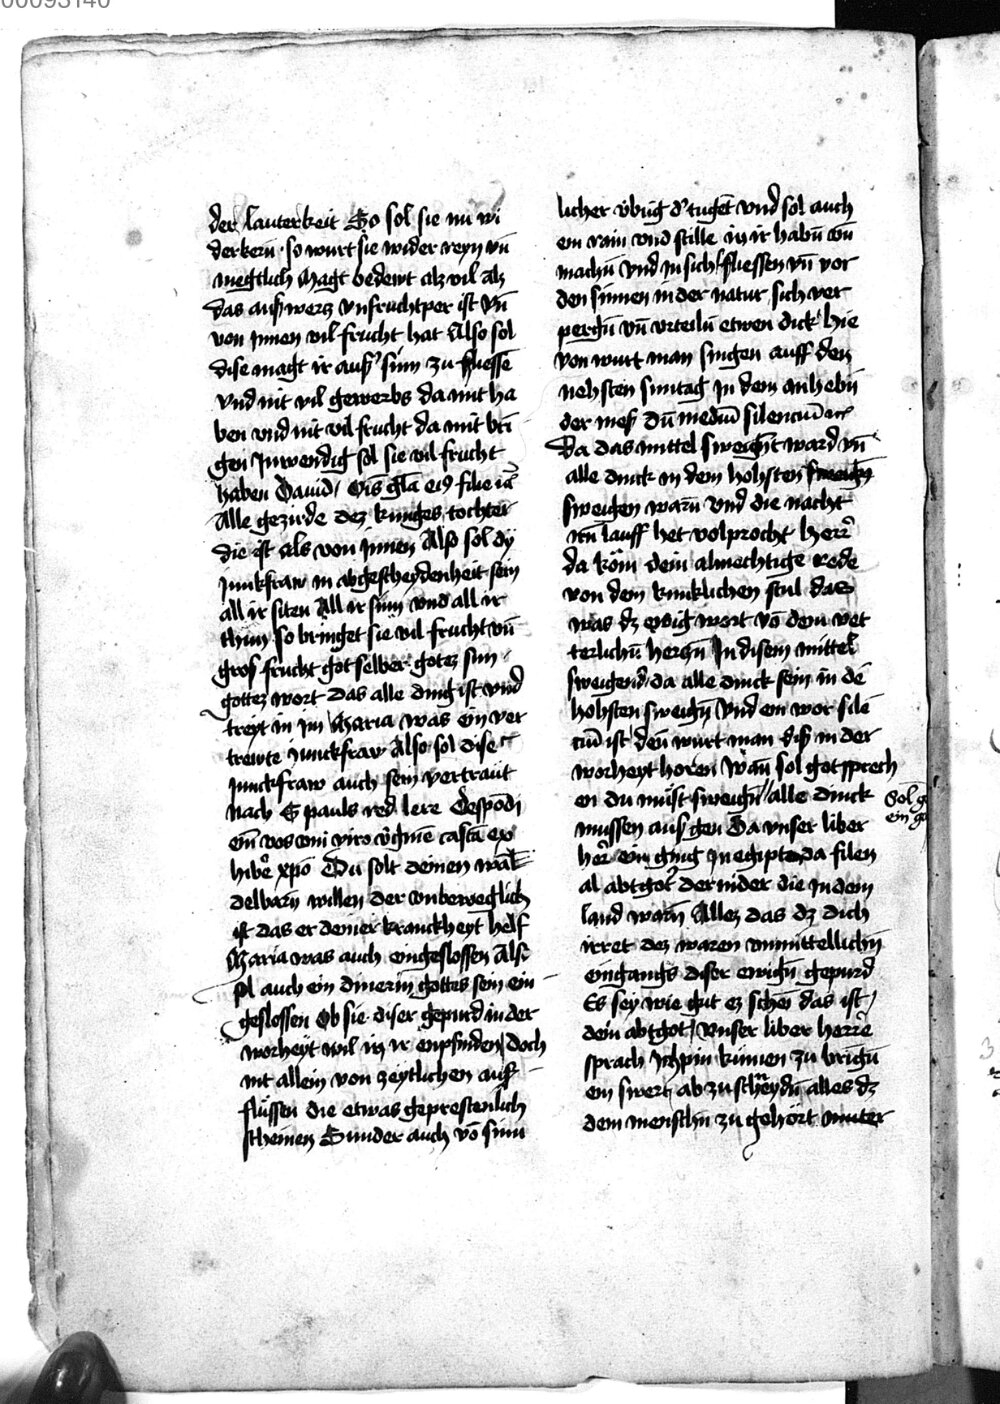 der lauterkeit So sol sie nu wi
derkern · so wurt sie wider reyn vn̄
megtlich Magt bedewt alz vil als
das ausswertz vnfruchtper ist vn̄
von jnnen vil frucht hat Also sol
dise magt ir auss sinn zu sliessē
vnd nit vil gewerbs da mit ha
ben vnd nit vil frucht da mit bri
gen Jnwendig sol sie vil frucht
haben Dauid Ois gl̄a ei9 filie
Alle gezirde dez kuniges tochter
die ist als von jnnen Also sol dy
junkfraw in abgescheydenheit sein
all ir siten All ir sinn vnd all ir
thun so bringet sie vil frucht vn̄
gros frucht got selber gotez sun
gottez wort das alle ding ist vnd
treyt in im Maria was ein ver
trewte junckfraw Also sol dise
junckfraw auch sein vertraut
nach S pauls red lere Despōdi
em̄ vos vni viro v̄gīnē castā ex
hibē xp̄o Du solt deinen wā
delbarn willen der vnbeweglich
ist das er deiner kranckheyt helf
Maria was auch eingeslossen Also
sol auch ein dinerin gottes sein ein
geslossen Ob sie diser gepurd in der
worheyt wil in ir enpfinden doch
nit allein von zeytlichen auss
flüssen die etwas geprestenlich
scheinen Sunder auch vō sinn
licher v̈būg d' tugēt vnd sol auch
ein rain vnd stille in ir habn̄ vn̄
machn̄ vnd jn sich sliessen vn̄ vor
den sinnen in der natur sich ver
pergn̄ vn̄ vrteiln̄ etwen dick hie
von wurt man singen auff den
nehsten suntag Jn dem anhebn̄
der mess Dū mediū silenciū etc
Da das mittel sweigēt ward vn̄
alle dinck in dem hohsten
sweigen warn̄ vnd die nacht
irn̄ lauff het volprocht Herr
da köm dein almechtige rede
von dem kuncklichen stul das
was dz ewig wort vō dem vet
terlichn̄ hertzn̄ Jn disem mittel
sweigend da alle dinck sein in dē
hohsten sweign̄ vnd ein wor silē
ciū ist den wurt man diss in der
worheyt horen Wan̄ sol got sprech
en du müst sweign̄ alle dinck
mussen auss gen Da vnser liber
her' ein ging jn egipten da filen
al abtgot dernider die jn dem
land warn̄ Allez das dz dich
irret dez waren vnmittellichn̄
eingangs diser ewign̄ gepurd
Es sey wie gut ez schei das ist
dein abtgot vnser liber herre
sprach Jch pin kumen zu brign̄
ein swert ab zu scheydn̄ alles dz
dem menschn̄ zu gehört muter
Sol g
ein g